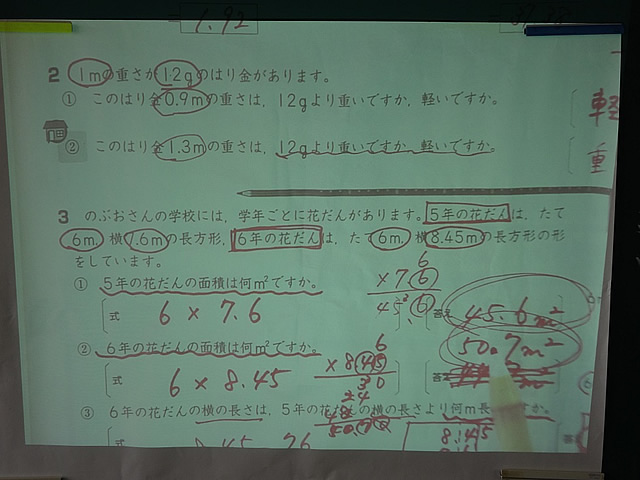 1.92
2 1mの重さが12gのはり金があります。
① このはり金0.9mの重さは，12gより重いですか，軽いですか。
軽
② このはり金1.3mの重さは，12gより重いですか，軽いですか。
重
3 のぶおさんの学校には，学年ごとに花だんがあります。5年の花だんは，たて
6m，横7.6mの長方形，6年の花だんは，たて6m，横8.45mの長方形の形
をしています。
① 5年の花だんの面積は何m²ですか。
式 6 × 7.6
6
×7.6
45.6
答え 45.6m²
② 6年の花だんの面積は何m²ですか。
式 6 × 8.45
6
×8.45
30
24
48
50.70
50.7m²
答え
③ 6年の花だんの横の長さは，5年の花だんの横の長さより何m長いですか。
式
8.45
答え